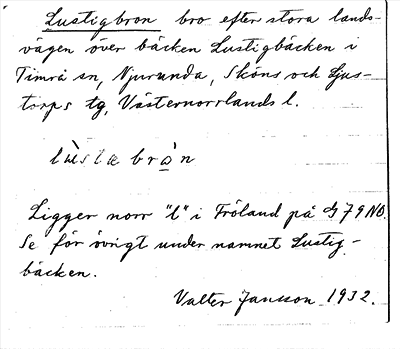 Lustigbron bro efter stora lands-
vägen över bäcken Lustigbäcken i
Timrå sn, Njurunda, Sköns och Ljus-
torps tg, Västernorrlands l.
lùstæ bròn
Ligger norr "l" i Fröland på G 79 NO.
Se för övrigt under namnet Lustig-
bäcken.
Valter Jansson 1932.